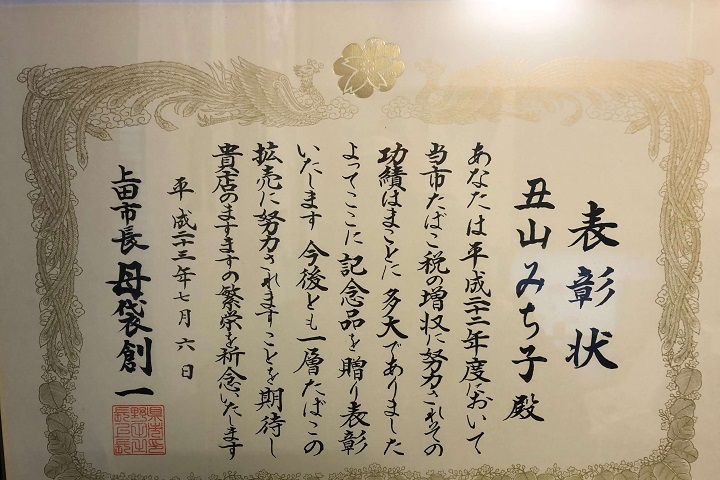 表彰状
丑山みち子殿
あなたは平成二十二年度において
当市たばこ税の増収に努力されその
功績はまことに多大でありました
よってここに記念品を贈り表彰
いたします 今後とも一層たばこの
拡売に努力されますことを期待し
貴店のますますの繁栄を祈念いたします
平成二十三年七月六日
上田市長 母袋創一